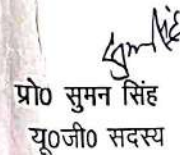 प्रो० सुमन सिंह
यू०जी० सदस्य